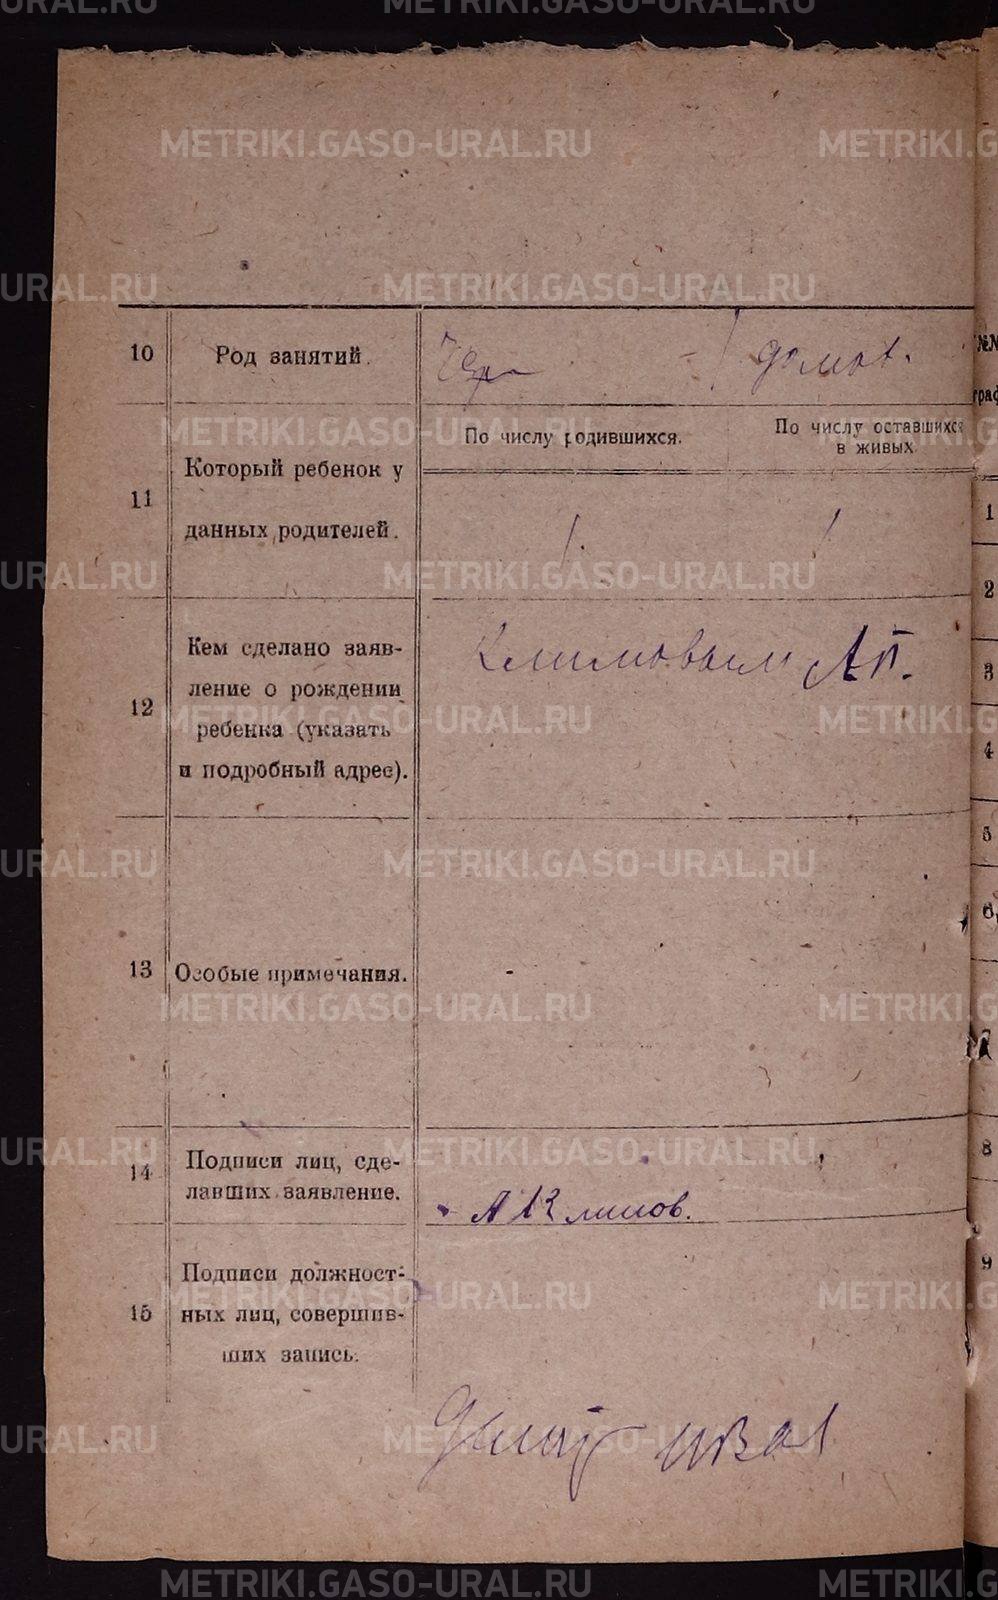 METRIKI.GASO-URAL.RU
10
Род занятий.
домов.
11
Который ребенок у
данных родителей.
По числу родившихся.
По числу оставшихся
в живых.
1.
1
12
Кем сделано заяв-
ление о рождении
ребенка (указать
и подробный адрес).
Климовым А П.
13
Особые примечания.
14
Подписи лиц, сде-
лавших заявление.
А Климов.
15
Подписи должност-
ных лиц, совершив-
ших запись.
№№
граф
1
2
3
4
5
6
7
8
9